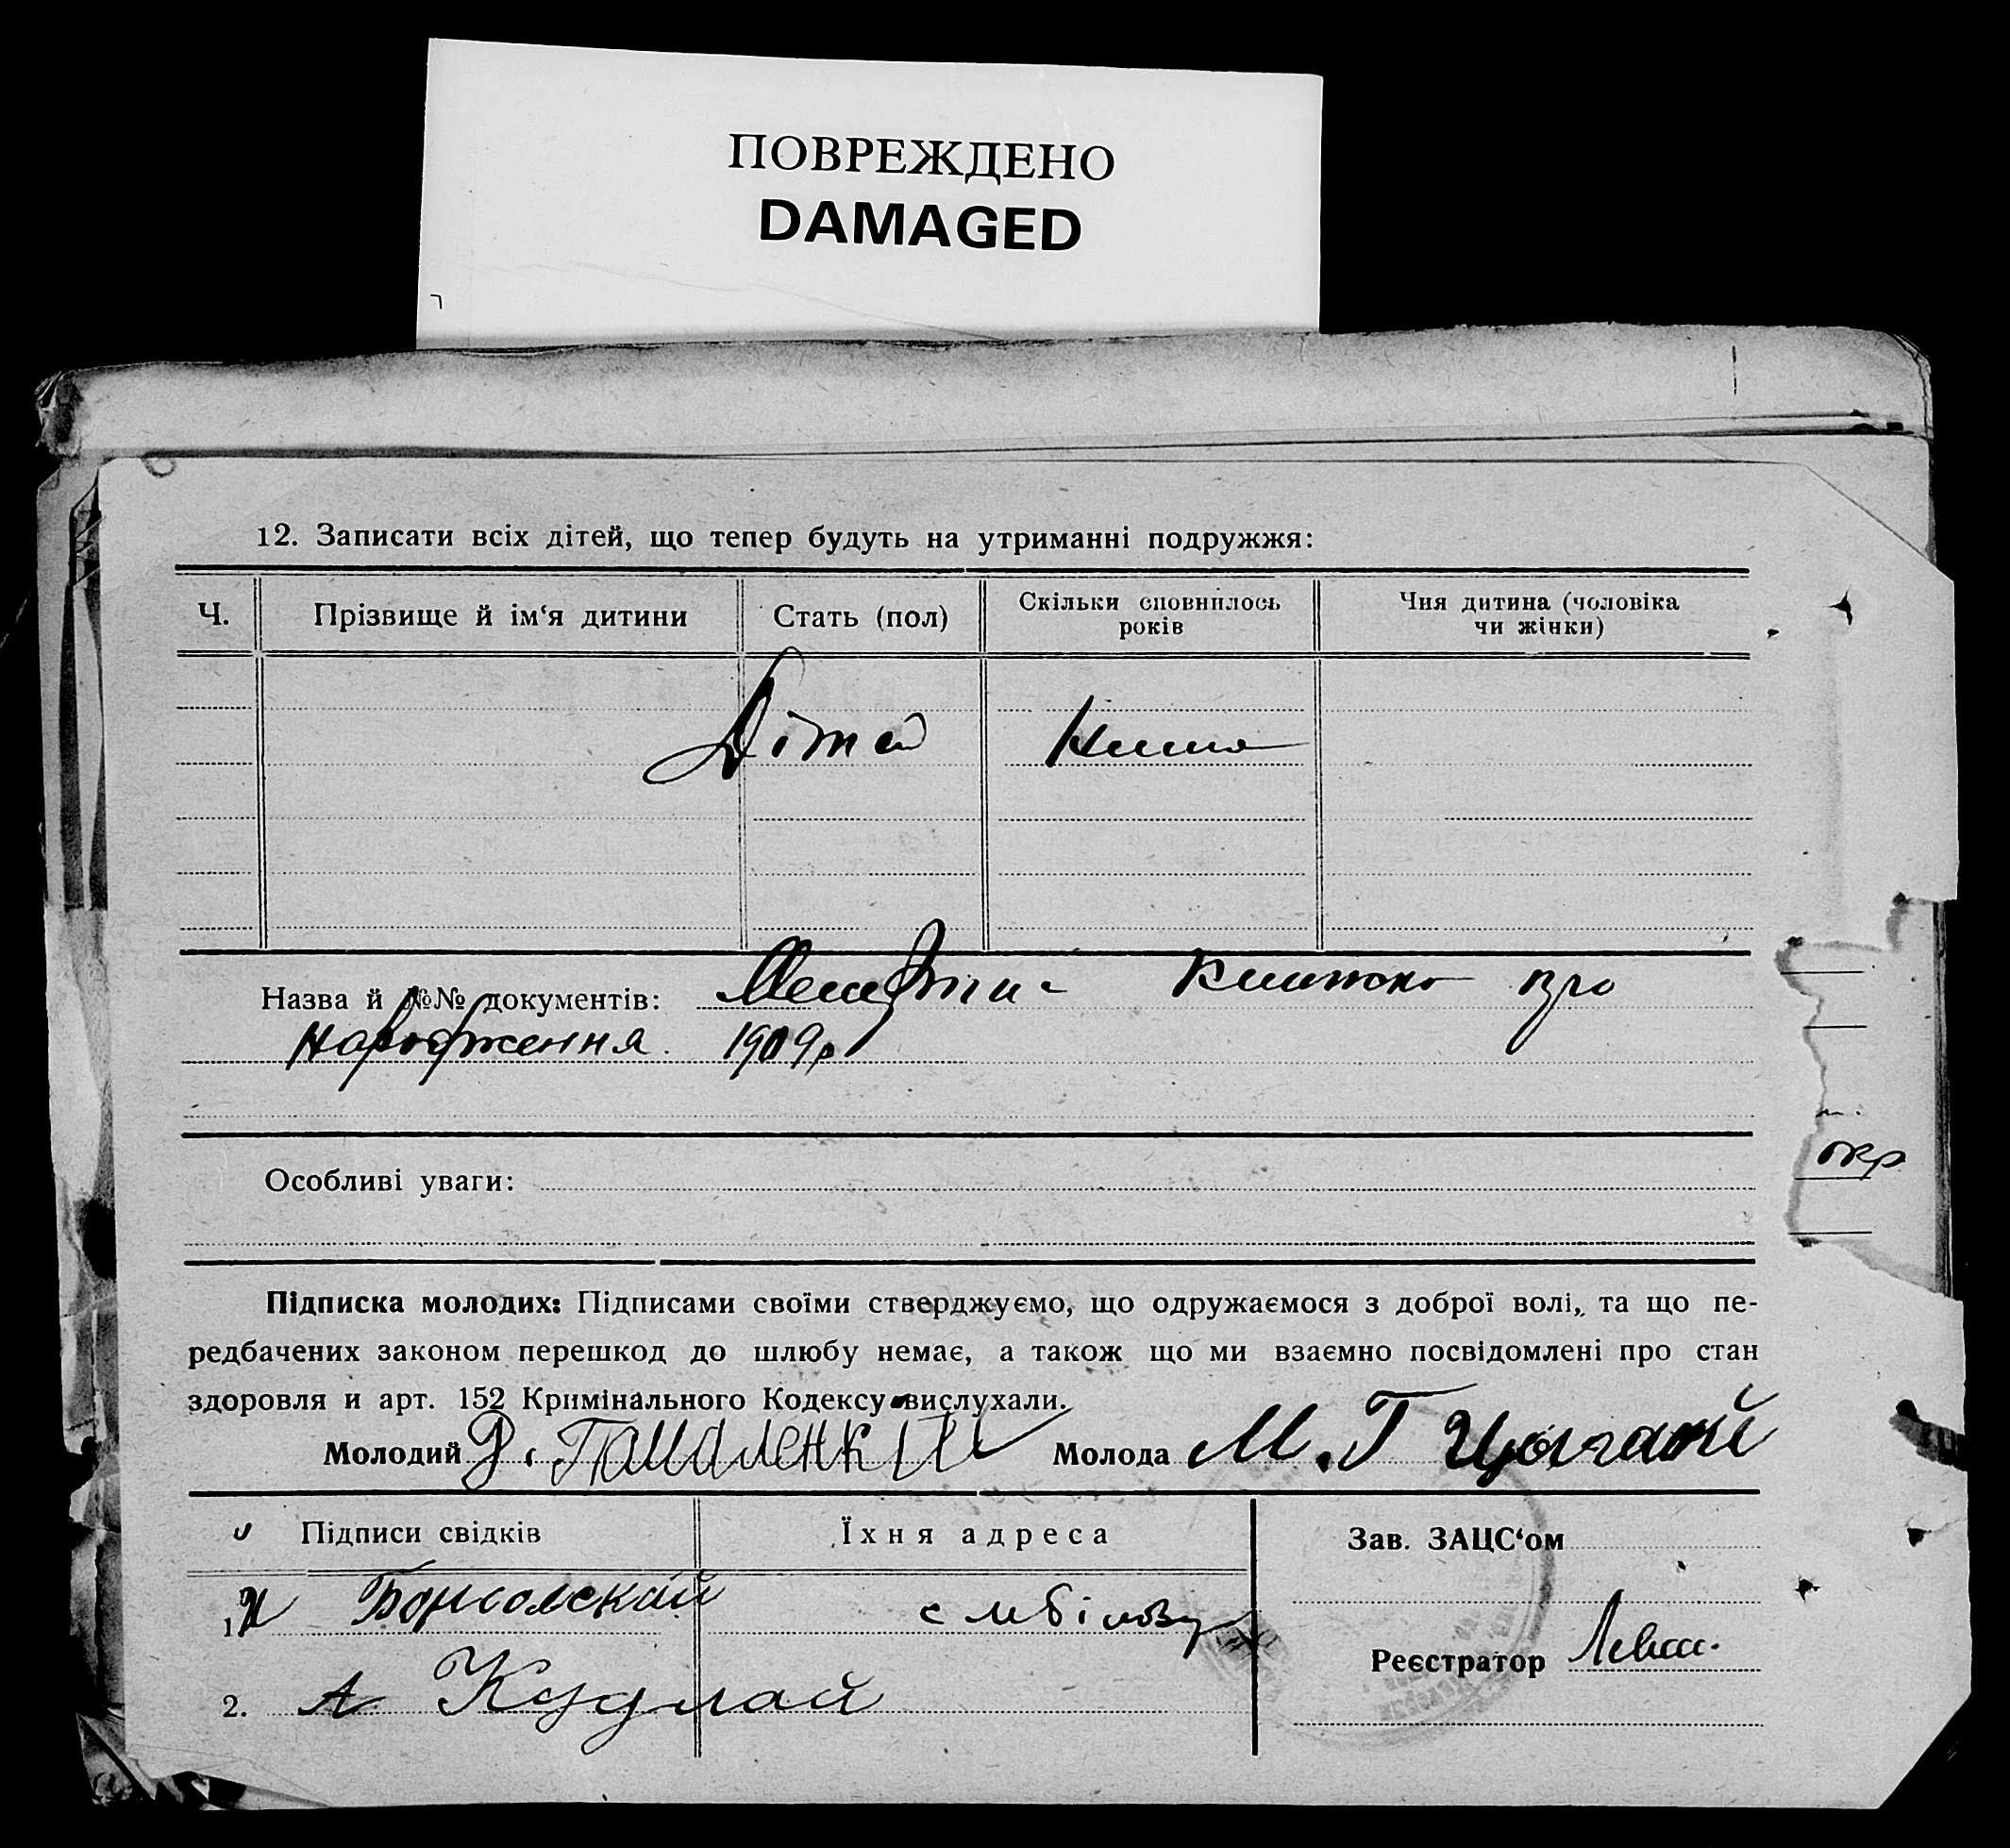 ПОВРЕЖДЕНО
DAMAGED
12. Записати всіх дітей, що тепер будуть на утриманні подружжя:
Ч.
Прізвище й ім‘я дитини
Стать (пол)
Скільки сповнилось
років
Чия дитина (чоловіка
чи жінки)
Дітей Нима
Назва й №№ документів: Метрти- Книжка про
народження 1909р
Особливі уваги:
Підписка молодих: Підписами своїми стверджуємо, що одружаємося з доброї волі, та що пе-
редбачених законом перешкод до шлюбу немає, а також що ми взаємно посвідомлені про стан
здоровля и арт. 152 Кримінального Кодексу вислухали.
Молодий Молода М.Г Цыганкй
Підписи свідків
Їхня адреса
Зав. ЗАЦС‘ом
1.
Реєстратор
2. А Кудлай
окр